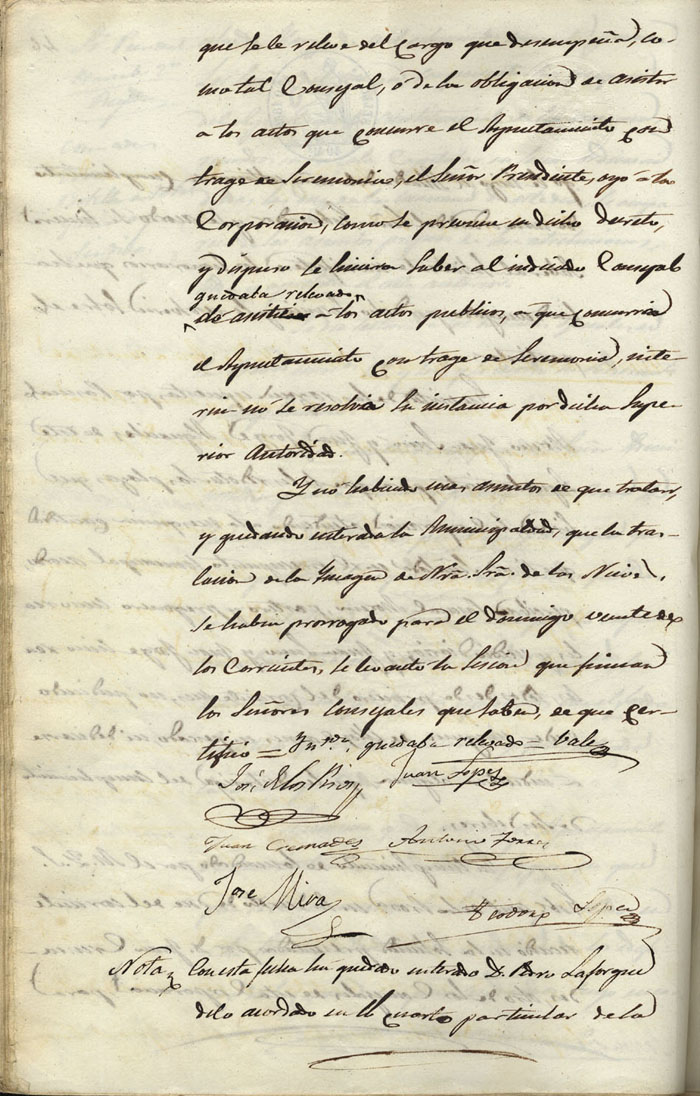 que se le releve del cargo que desempeña, co-
mo tal Consejal, o de la obligacion de asistir
a los actos que concurre el Ayuntamiento con
trage de Seremonia, el Señor Presidente, oyó a la
Corporacion, como se previene en dicho decreto,
y dispuso se hiciera saber al indicado Consejal
quedaba relevado
de asistir a los actos publicos, a que concurria
el Ayuntamiento con trage de Seremonia, inte-
rin no se resolvia la instancia por dicha Supe-
rior Autoridad.
Y no habiendo mas asuntos de que tratar,
y quedando enterada la Municipalidad, que la tras-
lacion de la Ymagen de Ntra. Sra. de las Nieves,
se habia prorrogado para el domingo veinte de
los Corrientes, se levantó la Sesion que firman
los Señores Consejales que saben, de que cer-
tifico = Entrdo. quedaba relevado = Vale
José de los Rios Juan Lopez
Juan Cremades Antonio
José Mira Teodoro Lopez
Nota Con esta fecha ha quedado enterado D. Pedro Laforgue
de lo acordado en el cuarto particular de la